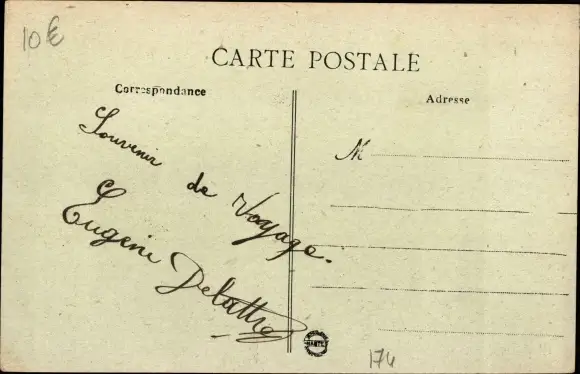 10€
CARTE POSTALE
Correspondance
Adresse
M
Souvenir de Voyage.
Eugène Delattre
NANTES
174